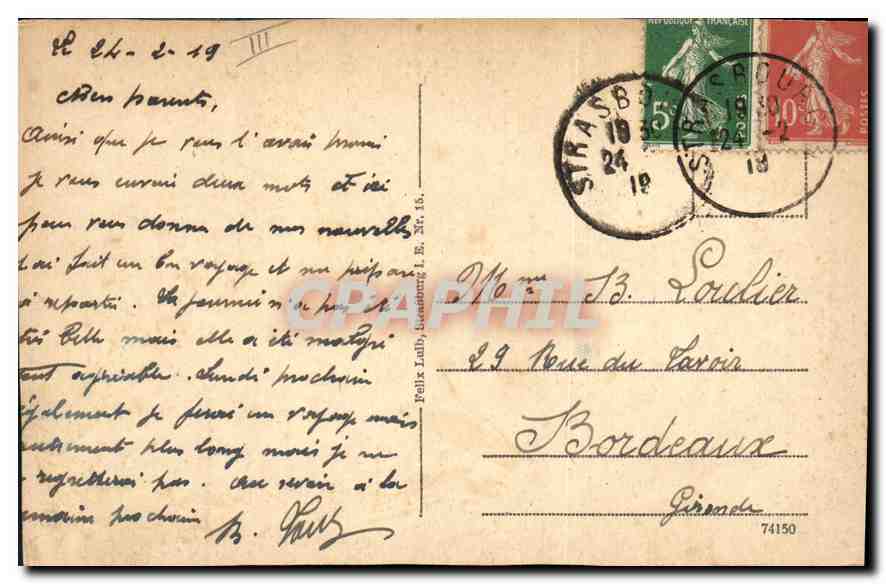 le 24-2-19
III
Chers parents,
Ainsi que je vous l'avais promi
je vous envoi deux mots et ici
pour vous donner de mes nouvelles
J'ai fait un bon voyage et me prépare
à repartir. La journée n'a pas été
très belle mais elle a été malgré
tout agréable. Lundi prochain
également je ferai un voyage mais
autrement plus long mais je ne
regretterai pas. Au revoir à la
semaine prochain
B.
Felix Luib, Strassburg i. E. Nr. 15.
RÉPUBLIQUE FRANÇAISE
5c
10c
POSTES
STRASBOURG
24
19
STRASBOURG
24 -2
19
CPAPHIL
Mme B. Loulier
29 Rue du Tavoir
Bordeaux
Gironde
74150